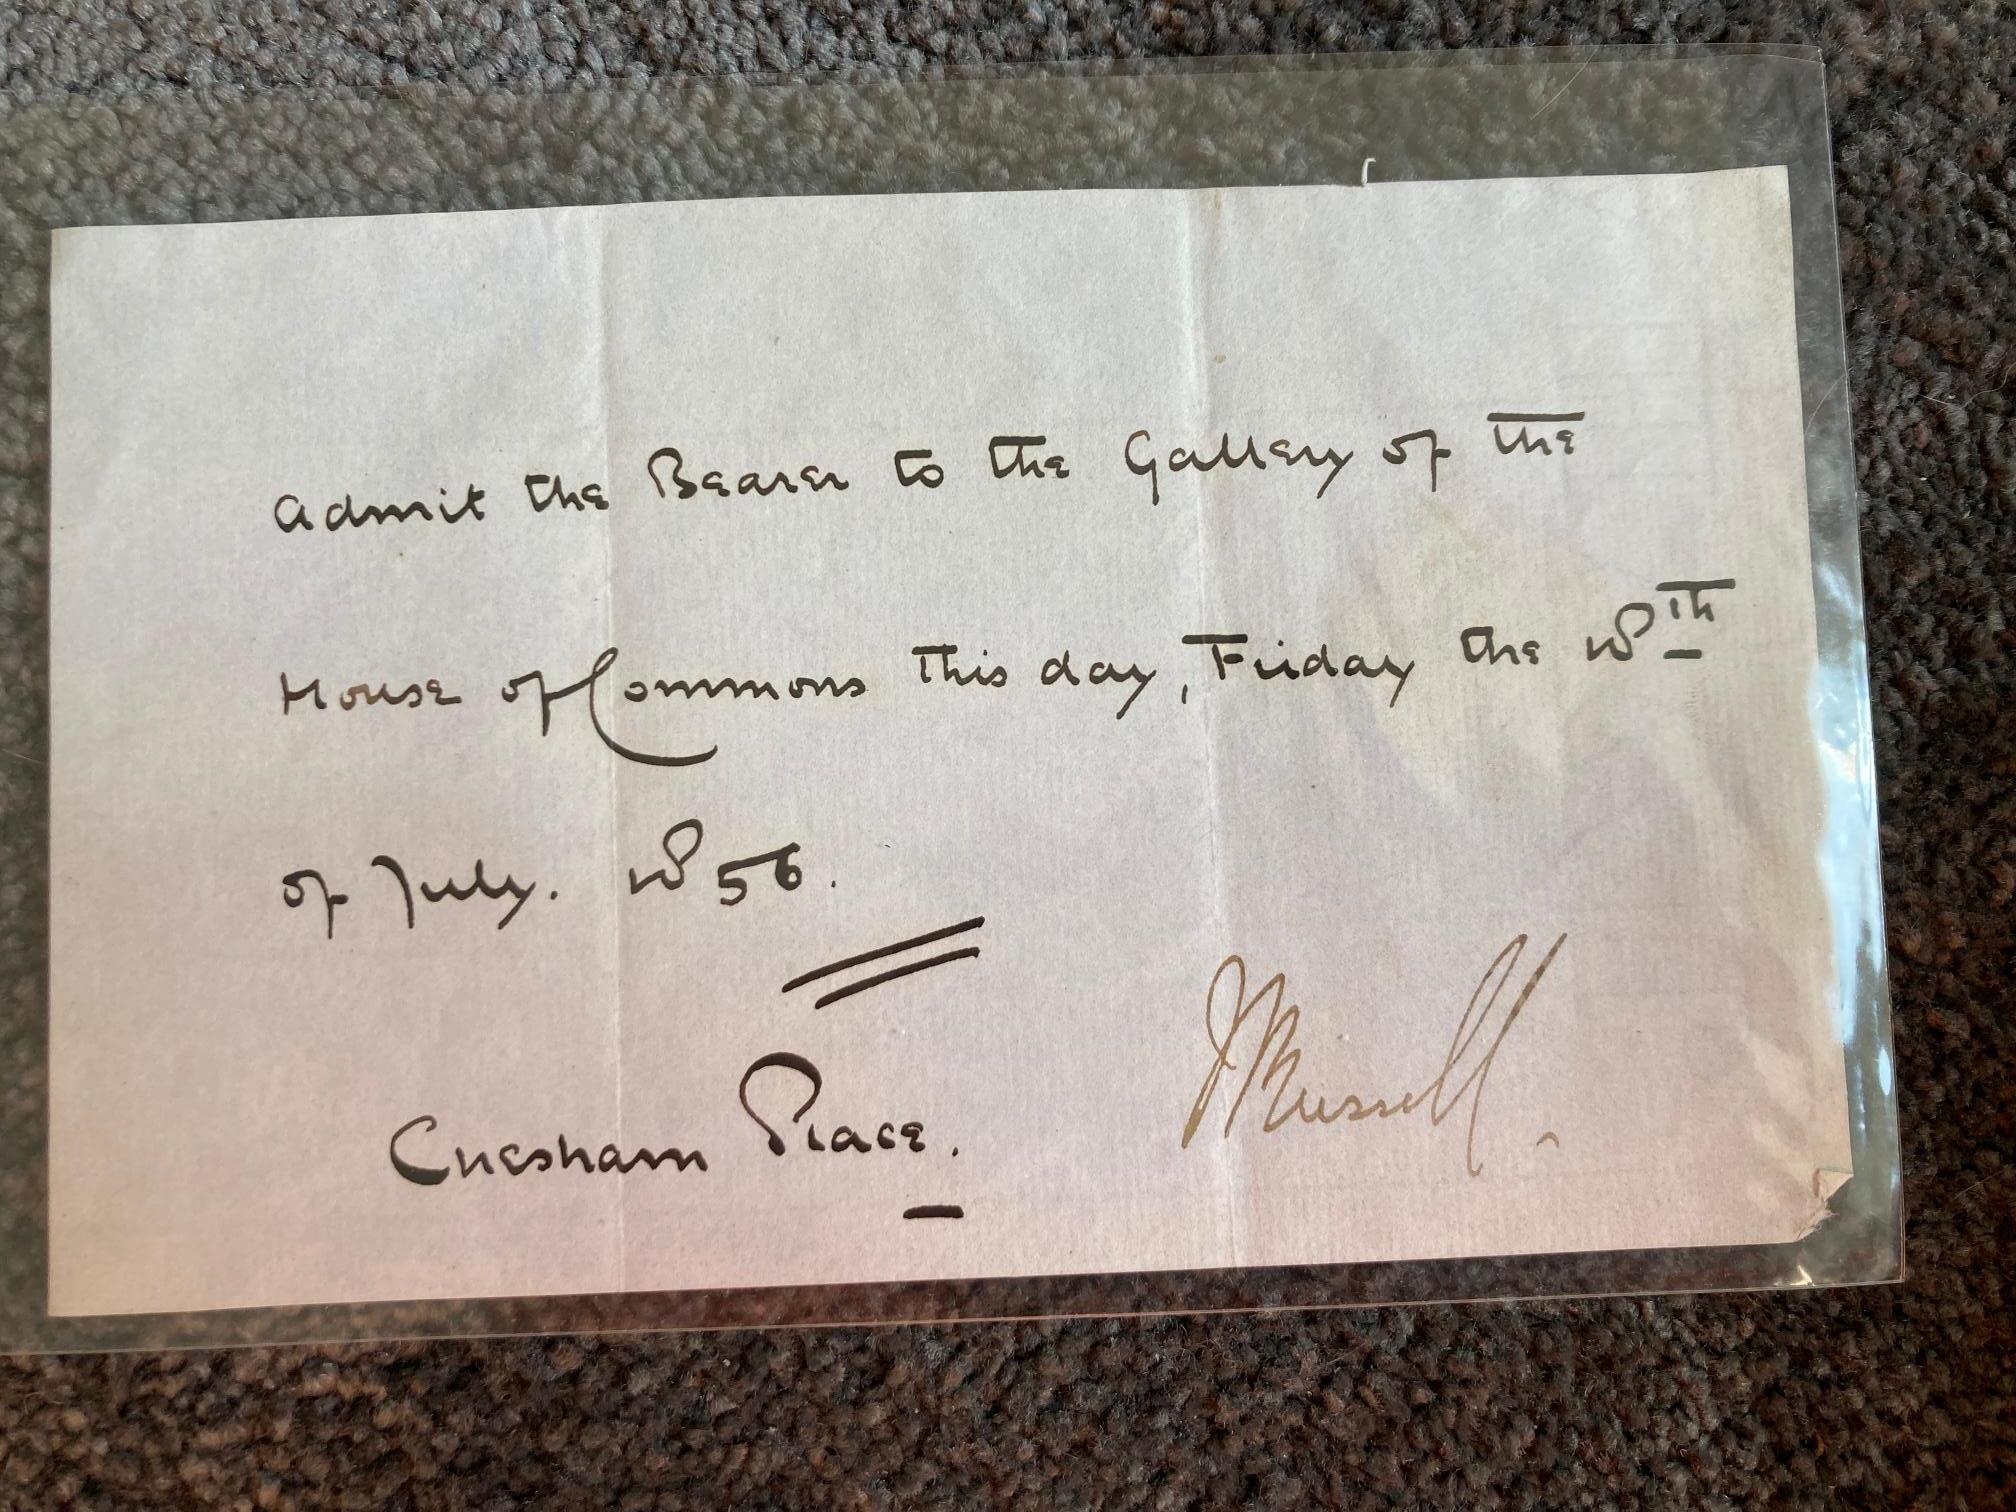 Admit the Bearer to the Gallery of the
House of Commons this day, Friday the 18th
of July. 1856.
Chesham Place.
J Russell.